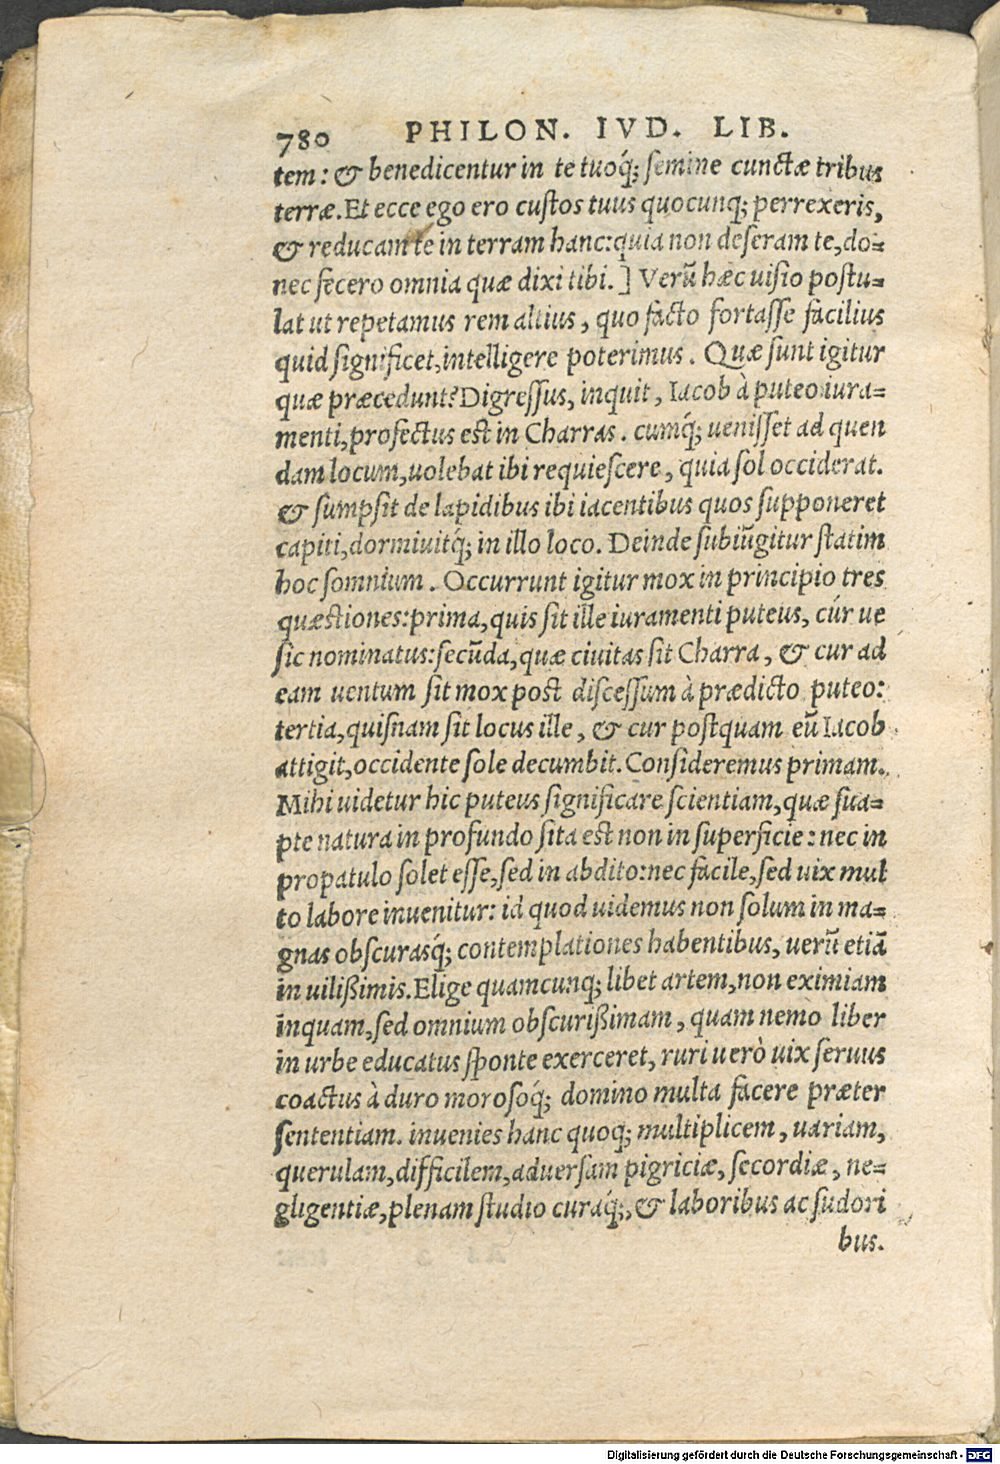 780 PHILON. IVD. LIB.
tem: & benedicentur in te tuoq́; ſemine cunctæ tribus
terræ. Et ecce ego ero cuſtos tuus quocunq; perrexeris,
& reducam te in terram hanc: quia non deſeram te, do=
nec fecero omnia quæ dixi tibi. ] Verũ hæc uiſio poſtu=
lat ut repetamus rem altius, quo facto fortaſſe facilius
quid ſignificet, intelligere poterimus. Quæ ſunt igitur
quæ præcedunt? Digreſſus, inquit, Iacob à puteo iura=
menti, profectus eſt in Charras. cumq́; ueniſſet ad quen
dam locum, uolebat ibi requieſcere, quia ſol occiderat.
& ſumpſit de lapidibus ibi iacentibus quos ſupponeret
capiti, dormiuitq́; in illo loco. Deinde ſubiũgitur ſtatim
hoc ſomnium. Occurrunt igitur mox in principio tres
quæſtiones: prima, quis ſit ille iuramenti puteus, cúr ue
ſic nominatus: ſecũda, quæ ciuitas ſit Charra, & cur ad
eam uentum ſit mox poſt diſceſſum à prædicto puteo:
tertia, quiſnam ſit locus ille, & cur poſtquam eũ Iacob
attigit, occidente ſole decumbit. Conſideremus primam.
Mihi uidetur hic puteus ſignificare ſcientiam, quæ ſua=
pte natura in profundo ſita eſt non in ſuperficie: nec in
propatulo ſolet eſſe, ſed in abdito: nec facile, ſed uix mul
to labore inuenitur: id quod uidemus non ſolum in ma=
gnas obſcurasq́; contemplationes habentibus, uerũ etiã
in uilißimis. Elige quamcunq; libet artem, non eximiam
inquam, ſed omnium obſcurißimam, quam nemo liber
in urbe educatus ſponte exerceret, ruri uerò uix ſeruus
coactus à duro moroſoq́; domino multa facere præter
ſententiam. inuenies hanc quoq; multiplicem, uariam,
querulam, difficilem, aduerſam pigriciæ, ſecordiæ, ne=
gligentiæ, plenam ſtudio curaq́;, & laboribus ac ſudori
bus.
Digitalisierung gefördert durch die Deutsche Forschungsgemeinschaft - DFG